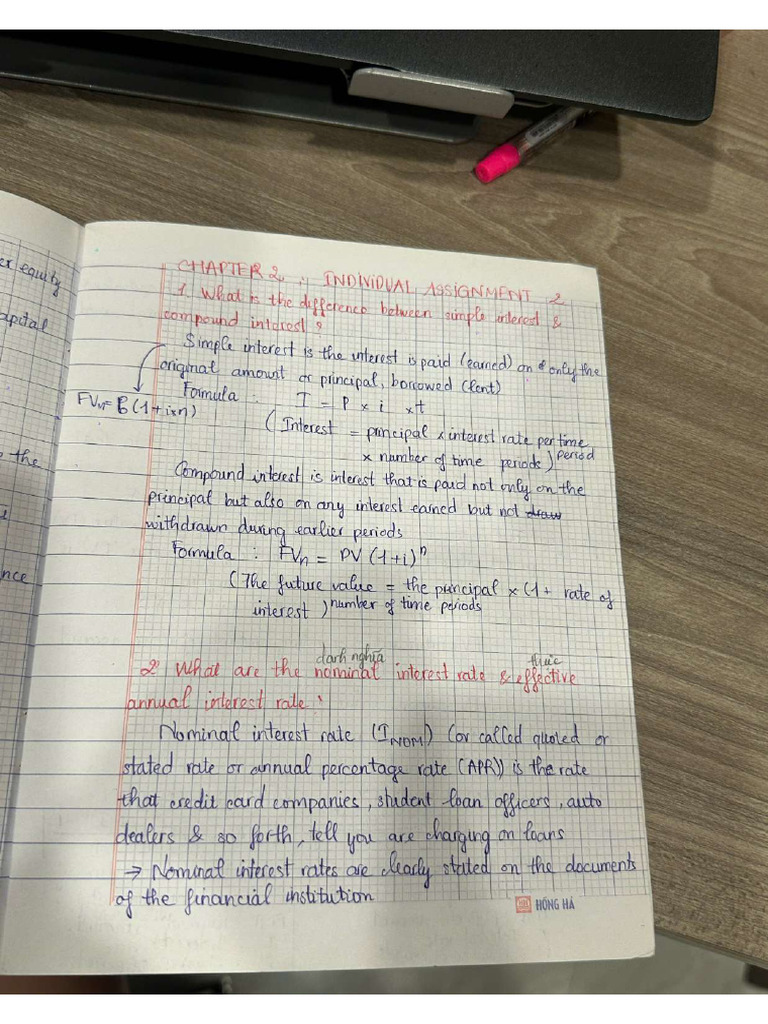 er equity
apital
the
nce
CHAPTER 2 : INDIVIDUAL ASSIGNMENT 2
1. What is the difference between simple interest &
compound interest?
Simple interest is the interest is paid (earned) on only the
original amount or principal, borrowed (lent)
Formula : I = P x i x t
FVn = P(1+ixn)
(Interest = principal x interest rate per time
x number of time periods) period
Compound interest is interest that is paid not only on the
principal but also on any interest earned but not draw
withdrawn during earlier periods
Formula : FVn = PV (1+i)^n
(The future value = the principal x (1+ rate of
interest) number of time periods
danh nghĩa thực
2. What are the nominal interest rate & effective
annual interest rate?
Nominal interest rate (INOM) (or called quoted or
stated rate or annual percentage rate (APR)) is the rate
that credit card companies, student loan officers, auto
dealers & so forth, tell you are charging on loans
→ Nominal interest rates are clearly stated on the documents
of the financial institution
HỒNG HÀ